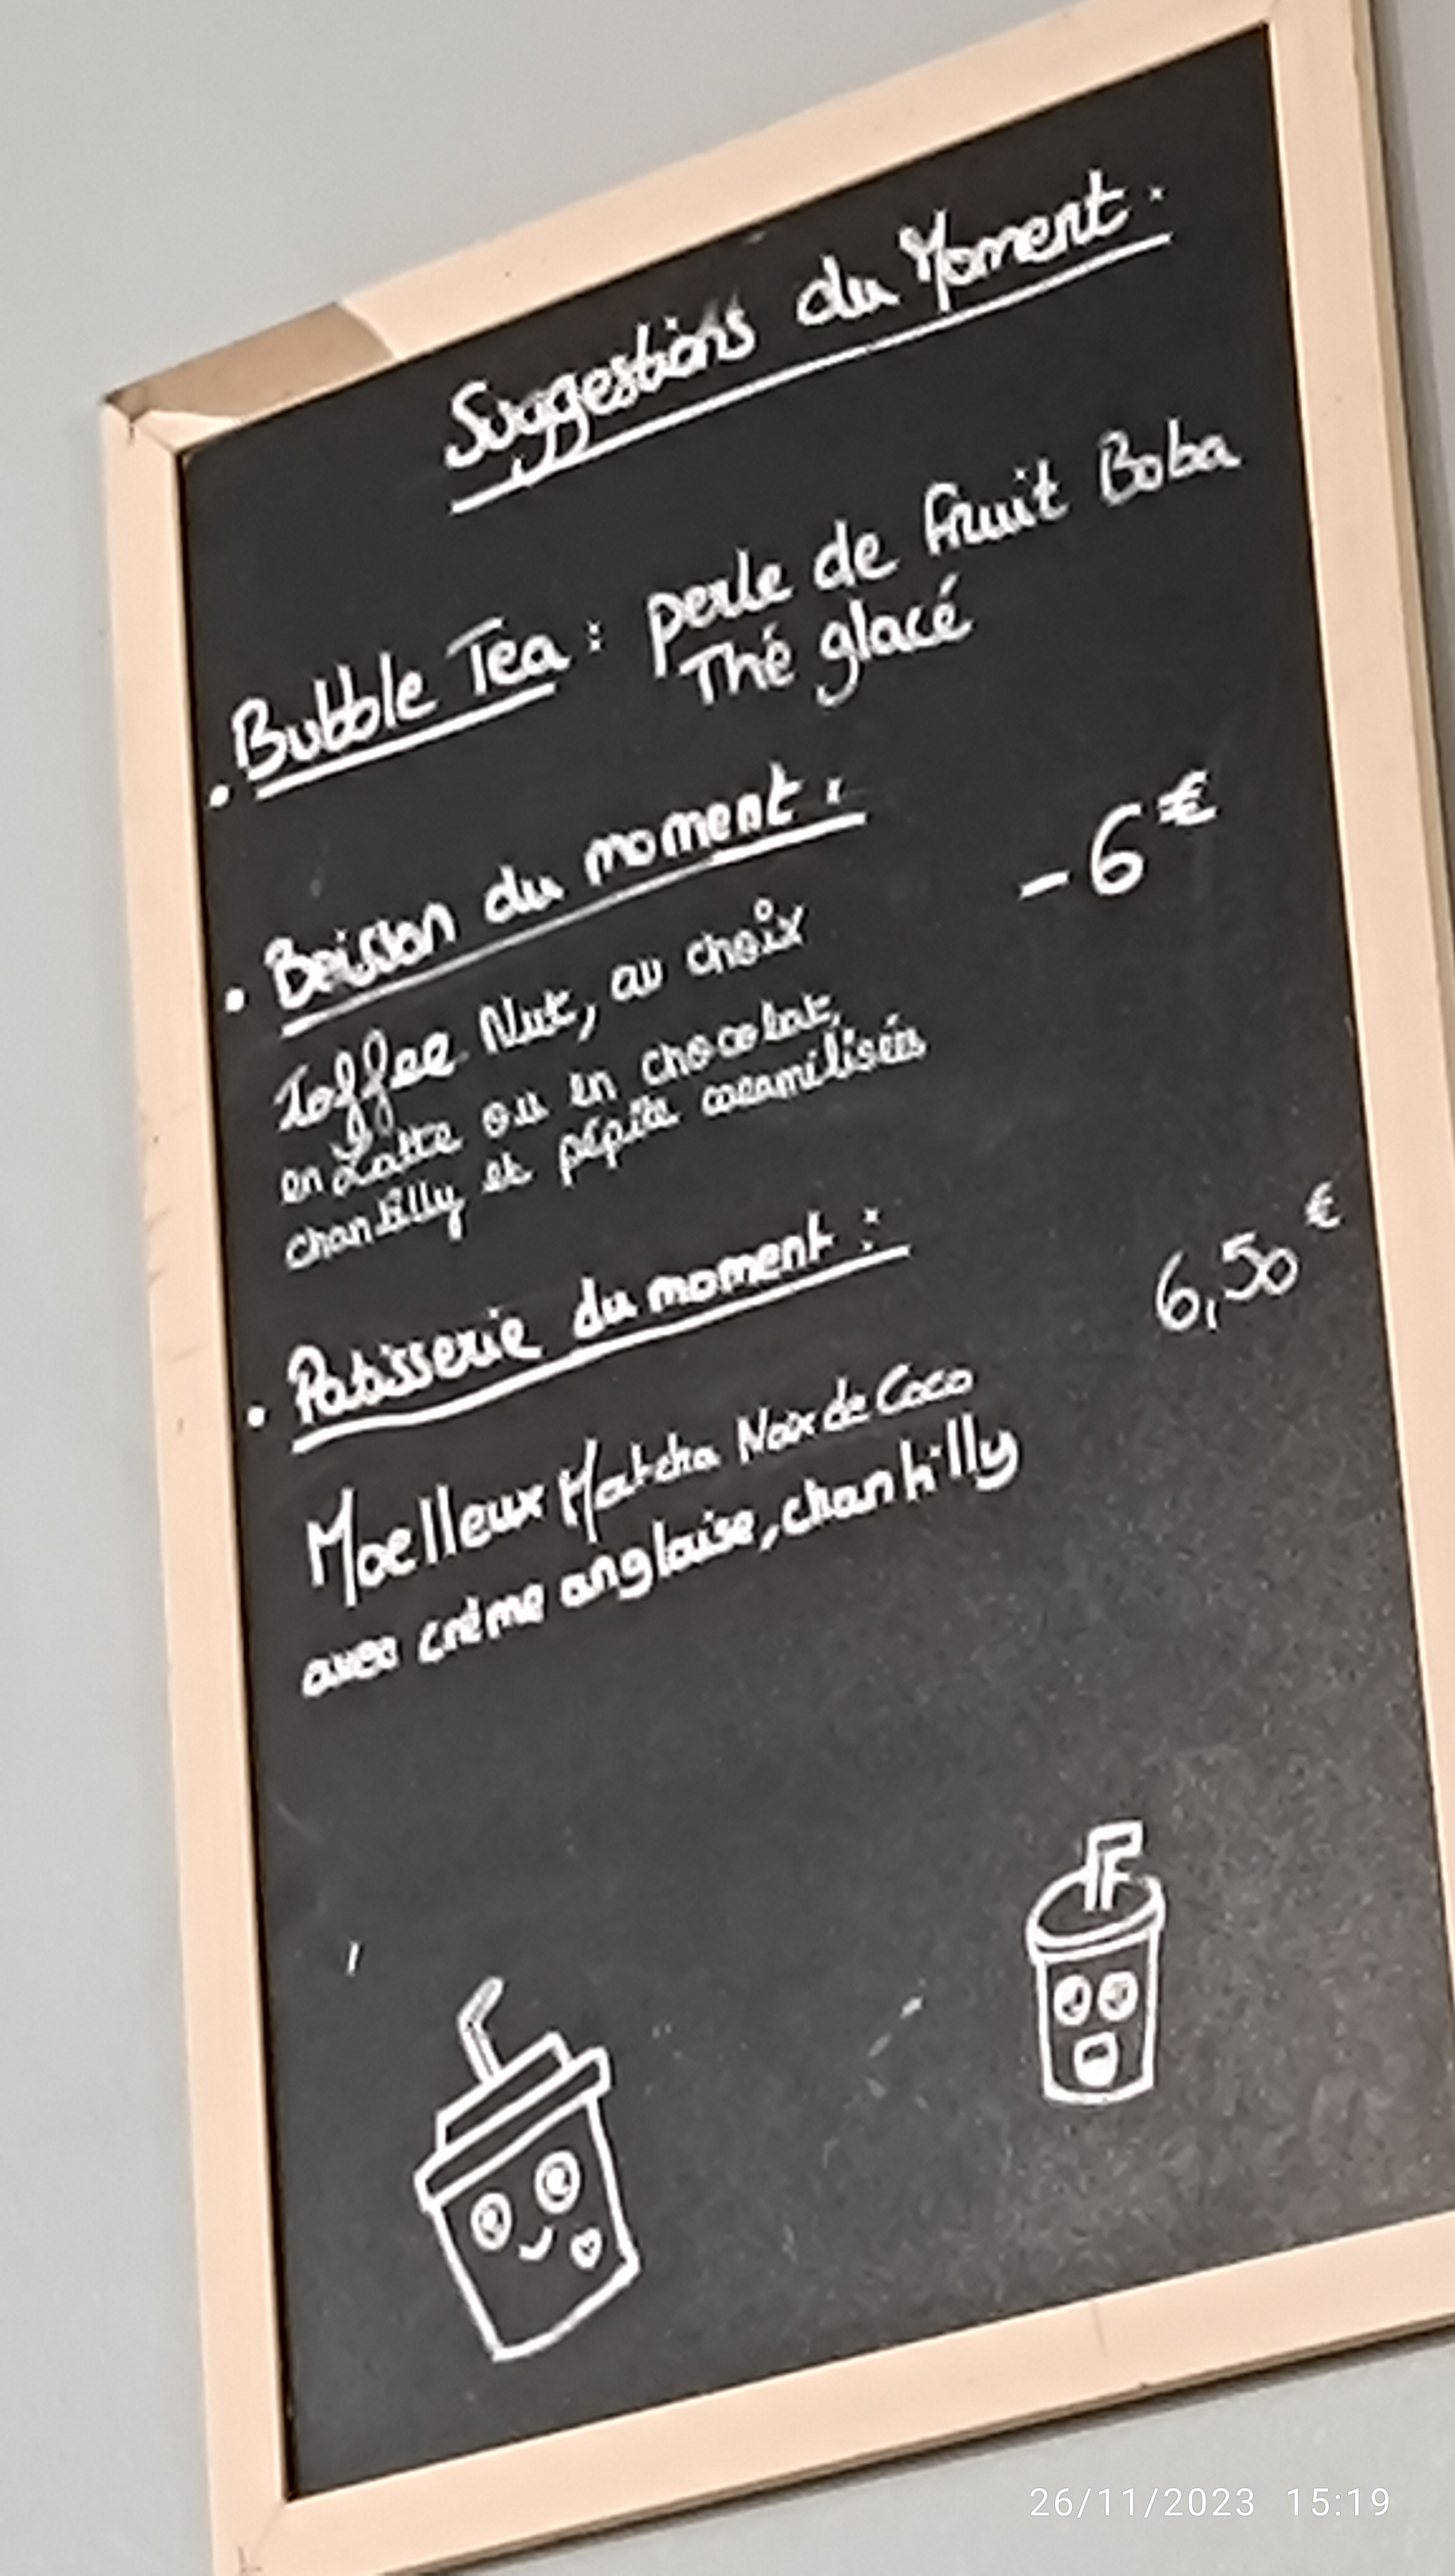 Suggestions du Moment :
. Bubble Tea : perle de fruit Boba
Thé glacé
. Boisson du moment : - 6€
Toffee Nut, au choix
en Latte ou en chocolat,
chantilly et pépite caramélisées
. Patisserie du moment : 6,50€
Moelleux Matcha Noix de Coco
avec crème anglaise, chantilly
26/11/2023 15:19